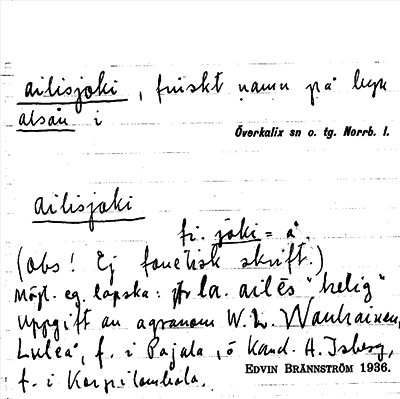 ailisjoki, finskt namn på byn
alsån i
Överkalix sn o. tg. Norrb. l.
ailisjoki
fi. joki = å.
(obs! Ej fonetisk skrift.)
Möjl. eg. lapska: la. ailēs "helig"
Uppgift av agronom W. L. Wanhainen,
Luleå, f. i Pajala, o kand. A. Isberg,
f. i Korpilombolo.
EDVIN BRÄNNSTRÖM 1936.